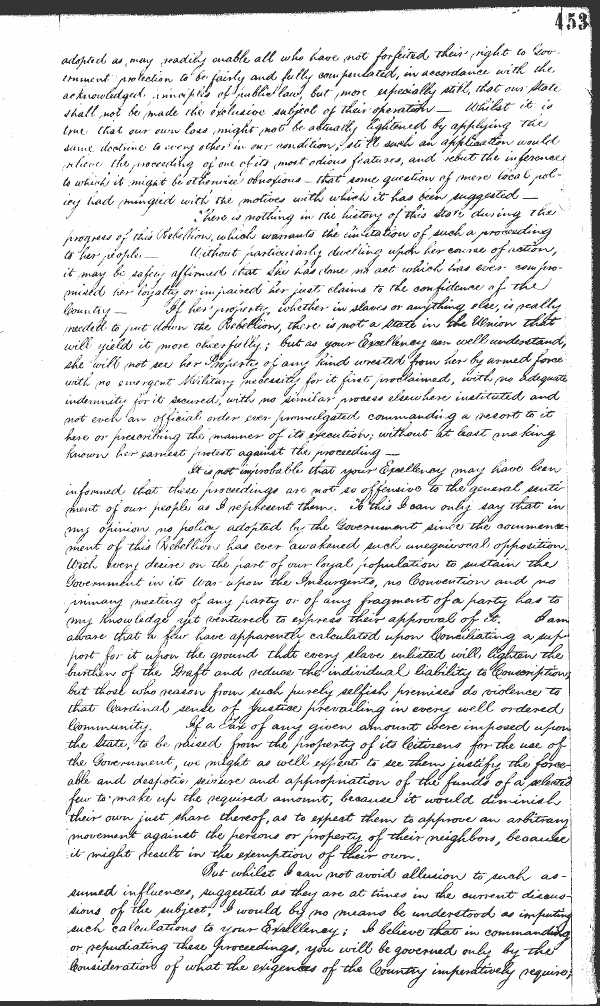 453
adopted as may readily enable all who have not forfeited their right to Gov-
ernment protection to be fairly and fully compensated, in accordance with the
acknowledged principles of public law, but more especially still, that our State
shall not be made the exclusive subject of their operation — Whilst it is
true that our own loss might not be actually lightened by applying the
same doctrine to every other in our condition, still such an application would
relieve the proceeding of one of its most odious features, and rebut the inference
to which it might be otherwise obnoxious — that some question of mere local pol-
icy had mingled with the motives with which it has been suggested —
There is nothing in the history of this State during the
progress of this Rebellion, which warrants the imitation of such a proceeding
to her people — Without particularly dwelling upon her course of action,
it may be safely affirmed that she has done no act which has ever compro-
mised her loyalty or impaired her just claims to the confidence of the
Country — If her property, whether in slaves or anything else, is really
needed to put down the Rebellion, there is not a State in the Union that
will yield it more cheerfully; but as your Excellency can well understand,
she will not see her Property of any kind wrested from her by armed force
with no emergent Military necessity for it first proclaimed, with no adequate
indemnity for it secured, with no similar process elsewhere instituted and
not even an official order ever promulgated commanding a resort to it
here or prescribing the manner of its execution; without at least making
known her earnest protest against the proceeding —
It is not improbable that your Excellency may have been
informed that these proceedings are not so offensive to the general senti-
ment of our people as I represent them. To this I can only say that in
my opinion no policy adopted by the Government since the commence-
ment of this Rebellion has ever awakened such unequivocal opposition.
With every desire on the part of our loyal population to sustain the
Government in its War upon the Insurgents, no Convention and no
primary meeting of any party or of any fragment of a party has to
my knowledge yet ventured to express their approval of it. I am
aware that a few have apparently calculated upon Conciliating a sup-
port for it upon the ground that every slave enlisted will lighten the
burthen of the Draft and reduce the individual liability to Conscription,
but those who reason from such purely selfish premises do violence to
that Cardinal sense of Justice prevailing in every well ordered
Community. If a Tax of any given amount were imposed upon
the State, to be raised from the property of its Citizens for the use of
the Government, we might as well expect to see them justify the force-
able and despotic seizure and appropriation of the funds of a selected
few to make up the required amount, because it would diminish
their own just share thereof, as to expect them to approve an arbitrary
movement against the persons or property of their neighbors, because
it might result in the exemption of their own.
But whilst I can not avoid allusion to such as-
sumed influences, suggested as they are at times in the current discus-
sions of the subject, I would by no means be understood as imputing
such calculations to your Excellency; I believe that in commanding
or repudiating these proceedings, you will be governed only by the
Consideration of what the exigences of the Country imperatively require;